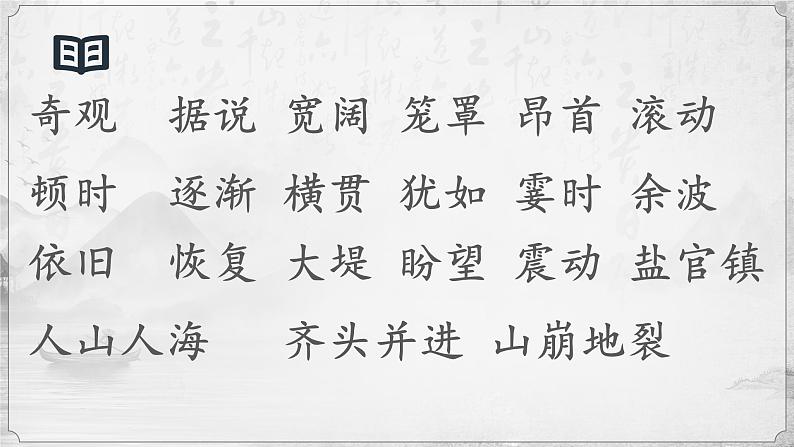 奇观 据说 宽阔 笼罩 昂首 滚动
顿时 逐渐 横贯 犹如 霎时 余波
依旧 恢复 大堤 盼望 震动 盐官镇
人山人海 齐头并进 山崩地裂